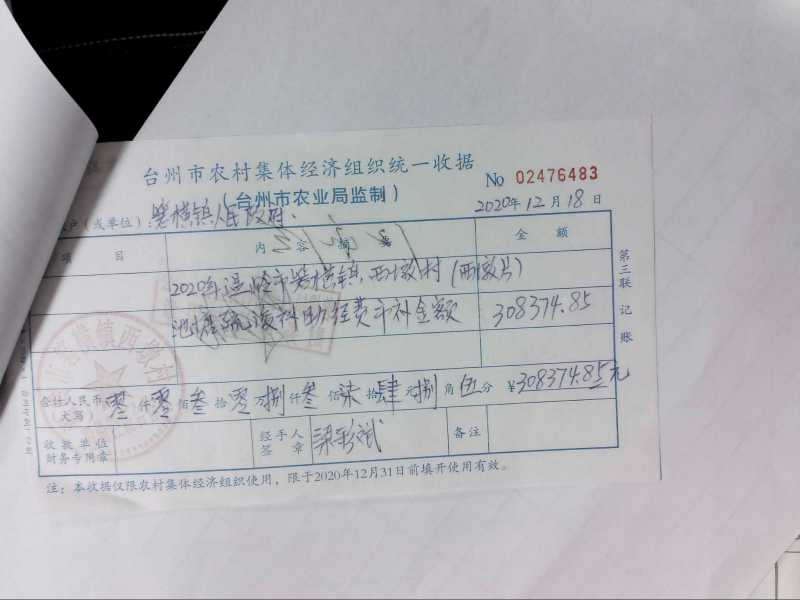 台州市农村集体经济组织统一收据
(台州市农业局监制)
No 02476483
2020年12月18日
户(或单位):箬横镇人民政府
项 目 内 容 摘 要 金 额
2020年温岭市箬横镇西墩村(西墩片)
池塘 补助经费市补金额 308374.85
合计人民币(大写) 零仟零佰叁拾零万捌仟叁佰柒拾肆元捌角伍分 ¥308374.85元
收款单位
财务专用章
经手人
签 章
梁彩斌
备注
第三联 记账
注:本收据仅限农村集体经济组织使用,限于2020年12月31日前填开使用有效。